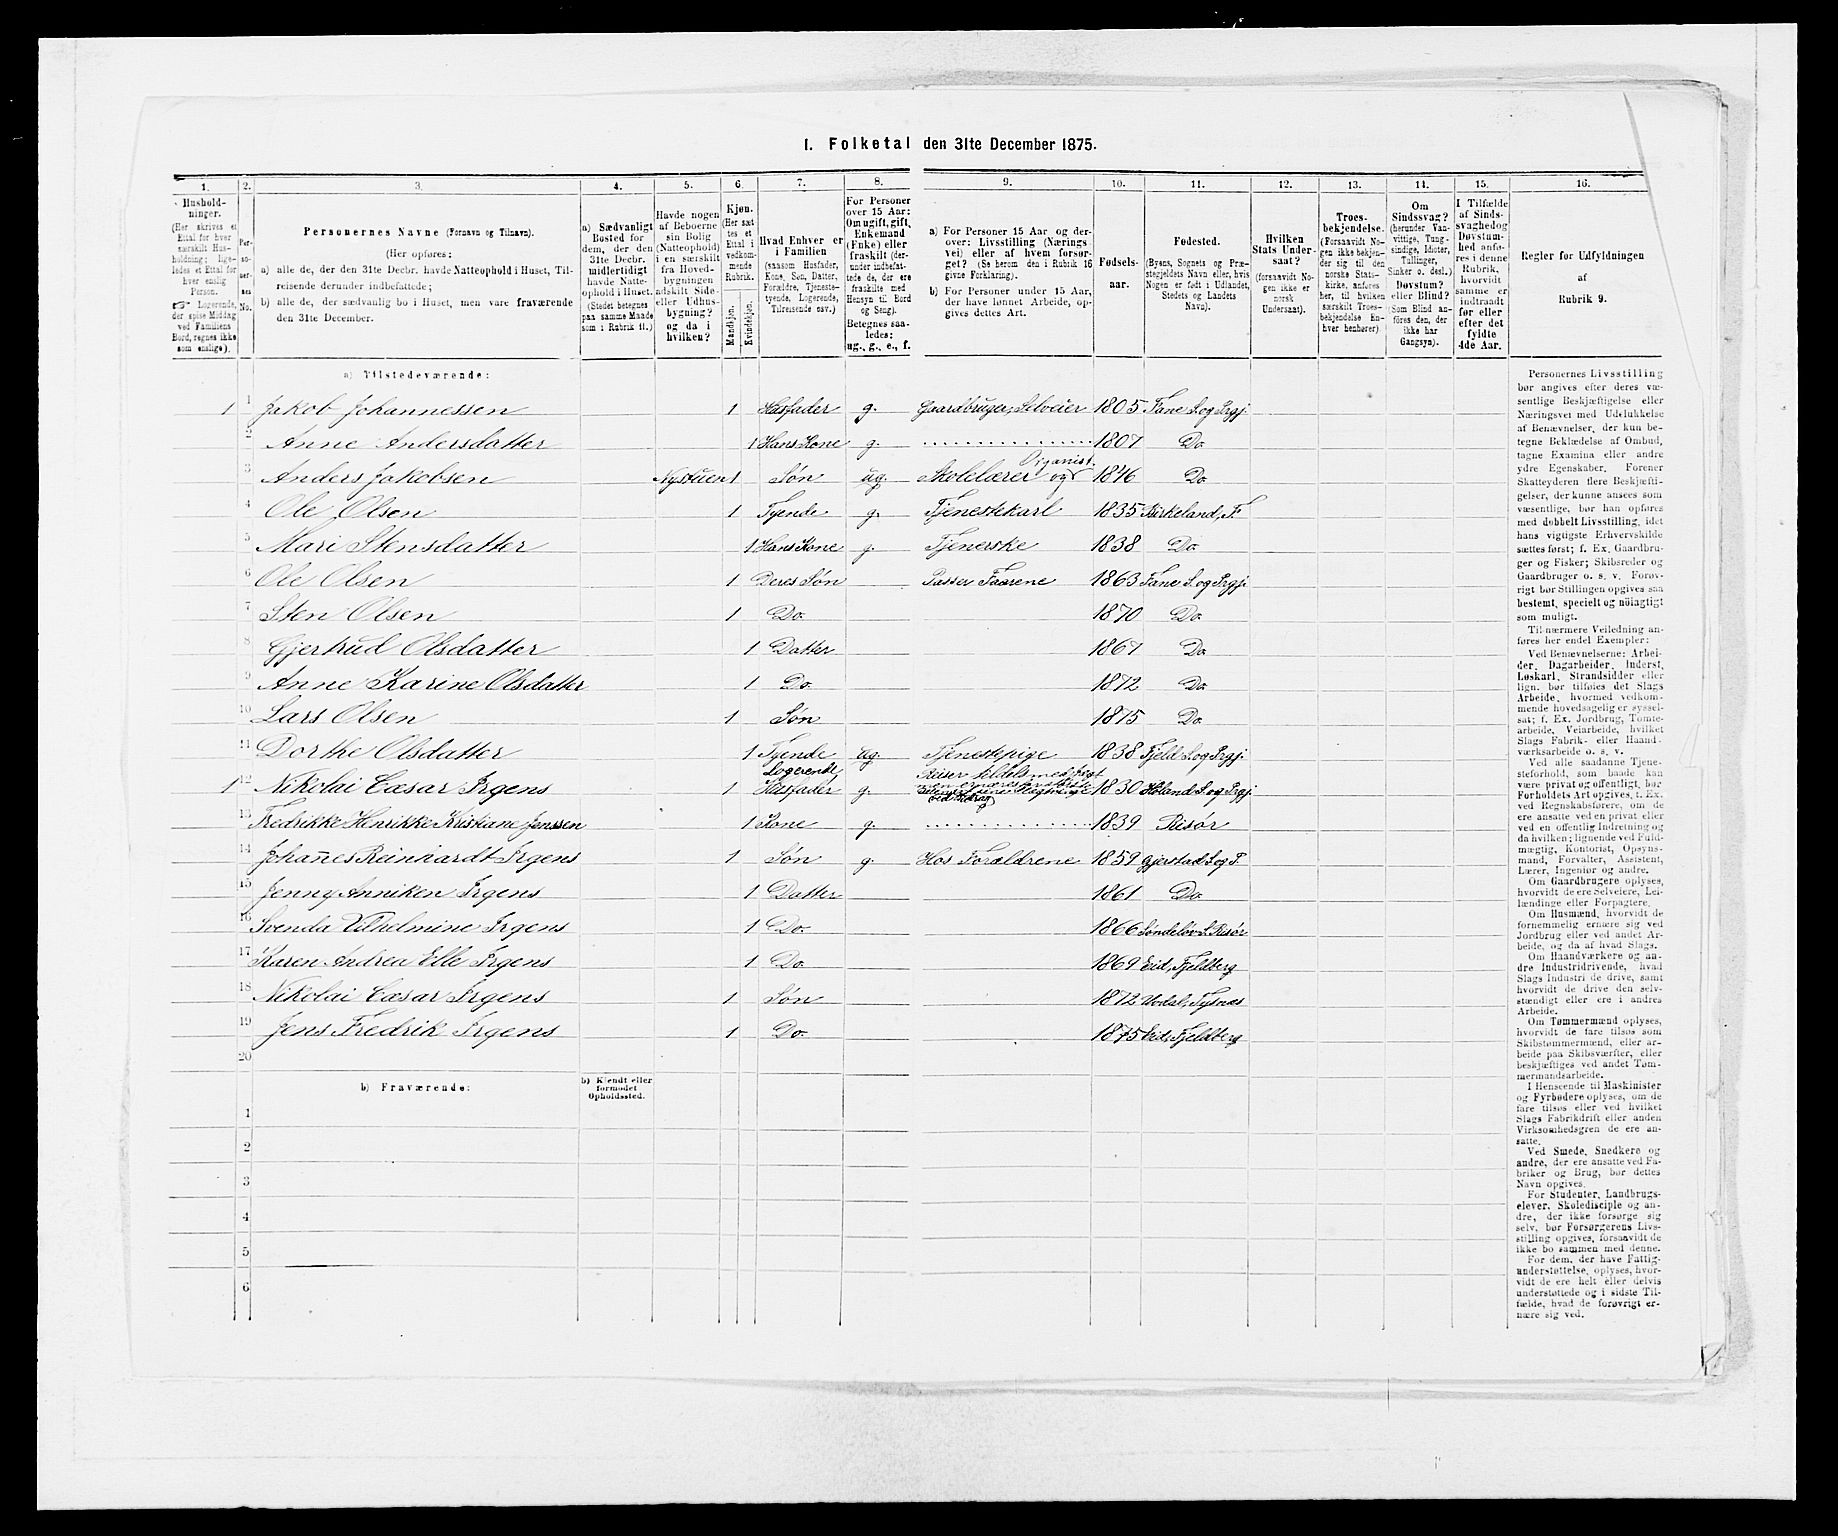 I. Folketal den 31te December 1875.
1. 2. 3. 4. 5. 6. 7. 8. 9. 10. 11. 12. 13. 14. 15. 16.
Hushold-
ninger.
(Her skrives et
Ettal for hver
særskilt Hus-
holdning; lige-
ledes et Ettal for
hver enslig
Person.
☞ Logerende,
der spise Middag
ved Familiens
Bord, regnes ikke
som enslige).
Per-
so-
ner-
nes
No.
Personernes Navne (Fornavn og Tilnavn).
(Her opføres:
a) alle de, der den 31te Decbr. havde Natteophold i Huset, Til-
reisende derunder indbefattede;
b) alle de, der sædvanlig bo i Huset, men vare fraværende
den 31te December.
a) Sædvanligt
Bosted for
dem, der den
31te Decbr.
midlertidigt
havde Natte-
ophold i Huset.
(Stedet betegnes
paa samme Maade
som i Rubrik 11.)
Havde nogen
af Beboerne
sin Bolig
(Natteophold)
i en særskilt
fra Hoved-
bygningen
adskilt Side-
eller Udhus-
bygning?
og da i
hvilken?
Kjøn.
(Her sæt-
tes et
Ettal i
vedkom-
mende
Rubrik.
Mandkjøn.
Kvindekjøn.
Hvad Enhver er
i Familien
(saasom Husfader,
Kone, Søn, Datter,
Forældre, Tjeneste-
tyende, Logerende,
Tilreisende osv.)
For Personer
over 15 Aar:
Om ugift, gift,
Enkemand
(Enke) eller
fraskilt (der-
under indbefat-
tede de, der ere
fraskilte med
Hensyn til Bord
og Seng).
Betegnes saa-
ledes:
ug., g., e., f.
a) For Personer 15 Aar og der-
over: Livsstilling (Nærings-
vei) eller af hvem forsør-
get? (Se herom den i Rubrik 16
givne Forklaring).
b) For Personer under 15 Aar,
der have lønnet Arbeide, op-
gives dettes Art.
Fødsels-
aar.
Fødested.
(Byens, Sognets og Præ-
stegjeldets Navn eller, hvis
Nogen er født i Udlandet,
Stedets og Landets
Navn).
Hvilken
Stats Under-
saat?
(forsaavidt No-
gen ikke er
norsk
Undersaat).
Troes-
bekjendelse.
(Forsaavidt No-
gen ikke bekjen-
der sig til den
norske Stats-
kirke, anføres
her, til hvilken
særskilt Troes-
bekjendelse En-
hver henhører)
Om
Sindssvag?
(herunder Van-
vittige, Tung-
sindige, Idioter,
Tullinger,
Sinker o. desl.)
Døvstum?
eller Blind?
(Som Blind an-
føres den, der
ikke har
Gangsyn).
I Tilfælde
af Sinds-
svaghed og
Døvstum-
hed anfø-
res i denne
Rubrik,
hvorvidt
samme er
indtraadt
før eller
efter det
fyldte
4de Aar.
Regler for Udfyldningen
af
Rubrik 9.
a) Tilstedeværende:
1 1 Jakob Johannessen 1 Husfader g. Gaardbruger, Selveier 1805 Fane S. og Prgj.
2 Anne Andersdatter 1 Hans Kone g. 1807 Do.
3 Anders Jakobsen Nystuen 1 Søn ug. Skolelærer og Organist. 1846 Do.
4 Ole Olsen 1 Tyende g. Tjenestekarl 1835 Birkeland, F.
5 Mari Stensdatter 1 Hans Kone g. Tjenerske 1838 Do.
6 Ole Olsen 1 Deres Søn Passer Faarene 1863 Fane S. og Prgj.
7 Sten Olsen 1 Do. 1870 Do.
8 Gjertrud Olsdatter 1 Datter 1867 Do.
9 Anne Karine Olsdatter 1 Do. 1872 Do.
10 Lars Olsen 1 Søn 1875 Do.
11 Dorthe Olsdatter 1 Tyende ug. Tjenestepige 1838 Fjeld S. og Prgj.
1 12 Nikolai Cæsar Irgens 1 Logerende, Husfader g. Reiser tildels med 1830 Høland S. og Prgj.
13 Fredrikke Henrikke Kristiane Jenssen 1 Kone g. 1839 Risør
14 Johan̄es Reinhardt Irgens 1 Søn g. Hos Forældrene 1859 Gjerstad S. og P.
15 Jenny Anniken Irgens 1 Datter 1861 Do.
16 Svenda Vilhelmine Irgens 1 Do. 1866 Søndelov S. Risør
17 Karen Andrea Elle Irgens 1 Do. 1869 Eid, Fjeldberg
18 Nikolai Cæsar Irgens 1 Søn 1872 Tysnæs
19 Jens Fredrik Irgens 1 Do. 1875 Eid, Fjeldberg
20
b) Fraværende:
b) Kjendt eller
formodet
Opholdssted.
1
2
3
4
5
6
Personernes Livsstilling
bør angives efter deres væ-
sentlige Beskjæftigelse eller
Næringsvei med Udelukkelse
af Benævnelser, der kun be-
tegne Beklædelse af Ombud,
tagne Examina eller andre
ydre Egenskaber. Forener
Skatteyderen flere Beskjæfti-
gelser, der kunne ansees som
væsentlige, bør han opføres
med dobbelt Livsstilling, idet
hans vigtigste Erhvervskilde
sættes først; f. Ex. Gaardbru-
ger og Fisker; Skibsreder og
Gaardbruger o. s. v. Forøv-
rigt bør Stillingen opgives saa
bestemt, specielt og nöiagtigt
som muligt.
Til nærmere Veiledning an-
føres her endel Exempler:
Ved Benævnelserne: Arbei-
der, Dagarbeider, Inderst,
Løskarl, Strandsidder eller
lign. bør tilføies det Slags
Arbeide, hvormed vedkom-
mende hovedsagelig er syssel-
sat; f. Ex. Jordbrug, Tomte-
arbeide, Veiarbeide, hvilket
Slags Fabrik- eller Haand-
værksarbeide o. s. v.
Ved alle saadanne Tjene-
steforhold, som baade kan
være privat og offentlig, bør
Forholdets Art opgives, t. Ex.
ved Regnskabsførere, om de
ere ansatte ved en privat eller
ved en offentlig Indretning og
da hvilken; lignende ved Fuld-
mægtig, Kontorist, Opsyns-
mand, Forvalter, Assistent,
Lærer, Ingeniør og andre.
Om Gaardbrugere oplyses,
hvorvidt de ere Selveiere, Lei-
lændinge eller Forpagtere.
Om Husmænd, hvorvidt de
fornemmelig ernære sig ved
Jordbrug eller ved andet Ar-
beide, og da af hvad Slags.
Om Haandværkere og an-
dre Industridrivende, hvad
Slags Industri de drive, samt
hvorvidt de drive den selv-
stændigt eller ere i andres
Arbeide.
Om Tømmermænd oplyses,
hvorvidt de fare tilsøs som
Skibstømmermænd, eller ar-
beide paa Skibsværfter, eller
beskjæftiges ved andet Tøm-
mermandsarbeide.
I Henseende til Maskinister
og Fyrbødere oplyses, om de
fare tilsøs eller ved hvilket
Slags Fabrikdrift eller anden
Virksomhedsgren de ere an-
satte.
Ved Smede, Snedkere og
andre, der ere ansatte ved Fa-
briker og Brug, bør dettes
Navn opgives.
For Studenter, Landbrugs-
elever, Skoledisciple og an-
dre, der ikke forsørge sig
selv, bør Forsørgerens Livs-
stilling opgives, forsaavidt de
ikke bo sammen med denne.
For dem, der have Fattig-
understøttelse, oplyses, hvor-
vidt de ere helt eller delvis
understøttede og i sidste Til-
fælde, hvad de forøvrigt er-
nære sig ved.